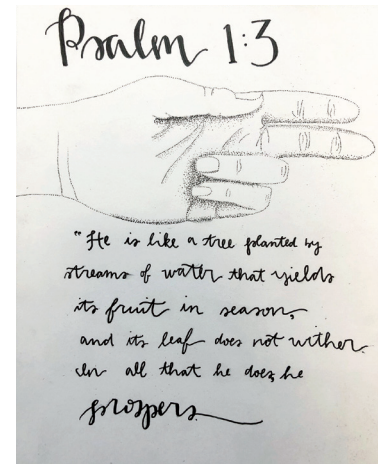 Psalm 1:3
"He is like a tree planted by
streams of water that yields
its fruit in season,
and its leaf does not wither.
In all that he does, he
prospers.